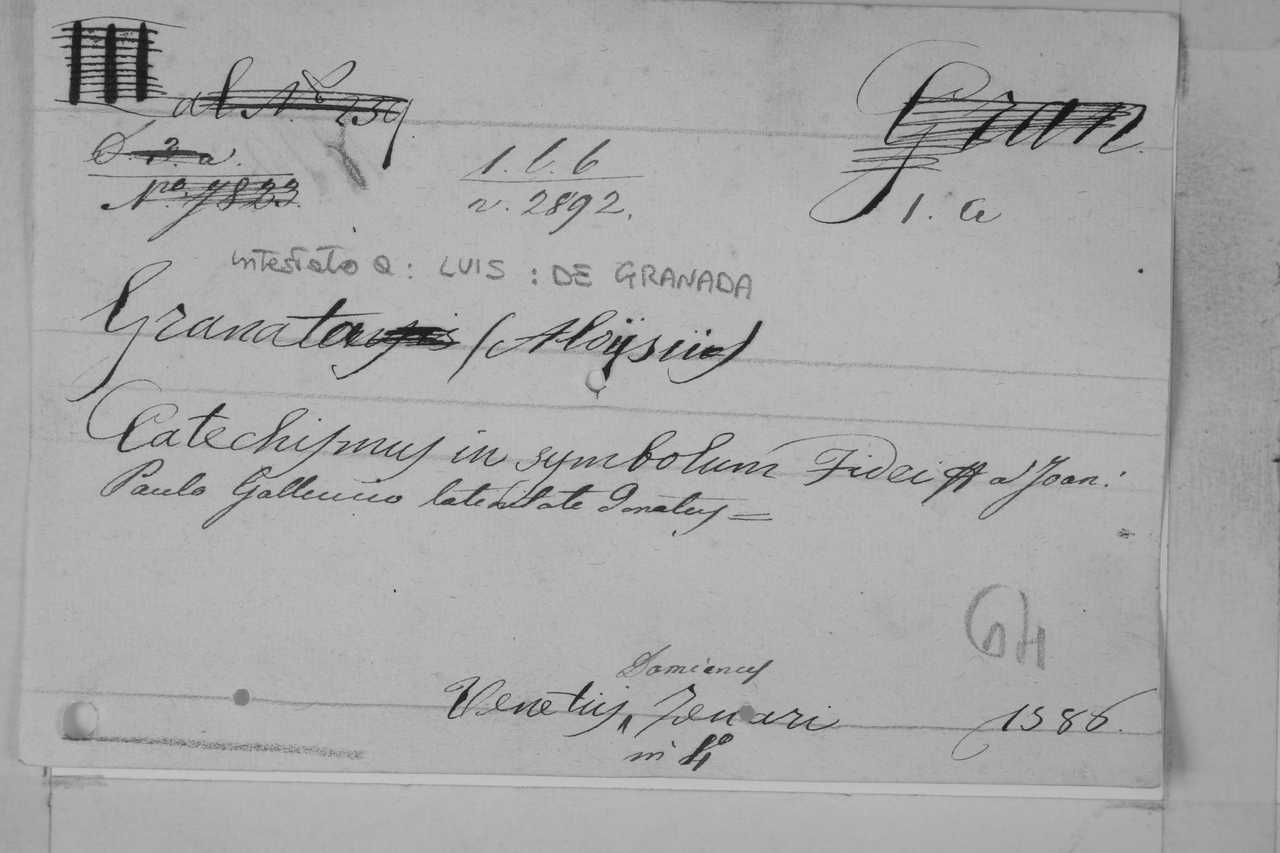 al N.º 259.
Gran
D. 2. a.
1. b. 6
Nro. 7823
n. 2892.
1. a
intestato a: LUIS : DE GRANADA
Granatensis (Aloÿsiü)
Catechismus in symbolum Fidei a Joan:
Paulo Gallucio latinitate donatus =
64
Damianus
Venetiis, Zenari 1586.
in 4º